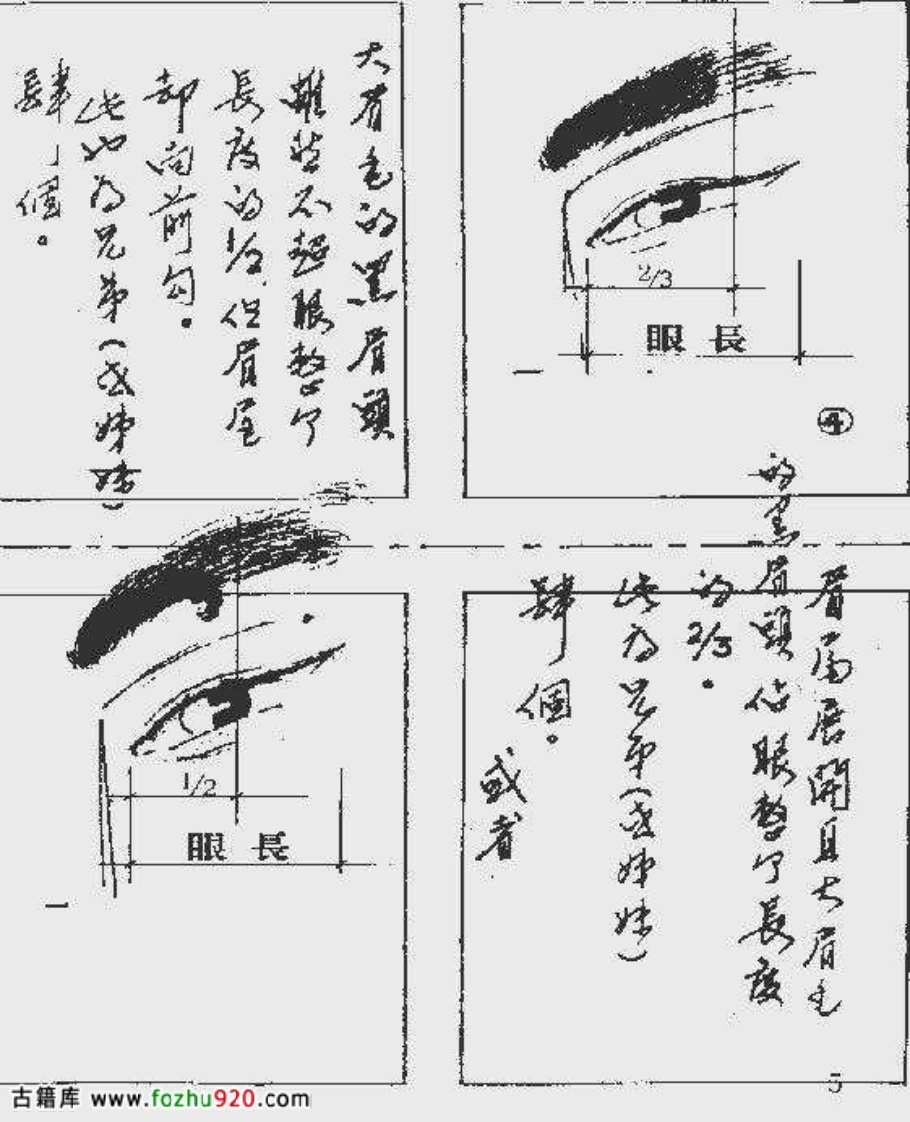 大眉毛的黑眉頭
雖然不超眼整个
長度的1/2但眉尾
却向前勾。
此也为兄弟(或姊妹)
肆個。
2/3
眼長
④
眉尾展開且大眉毛
的黑眉頭佔眼整个長度
的2/3。
此为兄弟(或姊妹)
肆個。
或者
1/2
眼長
5
古籍库 www.fozhu920.com